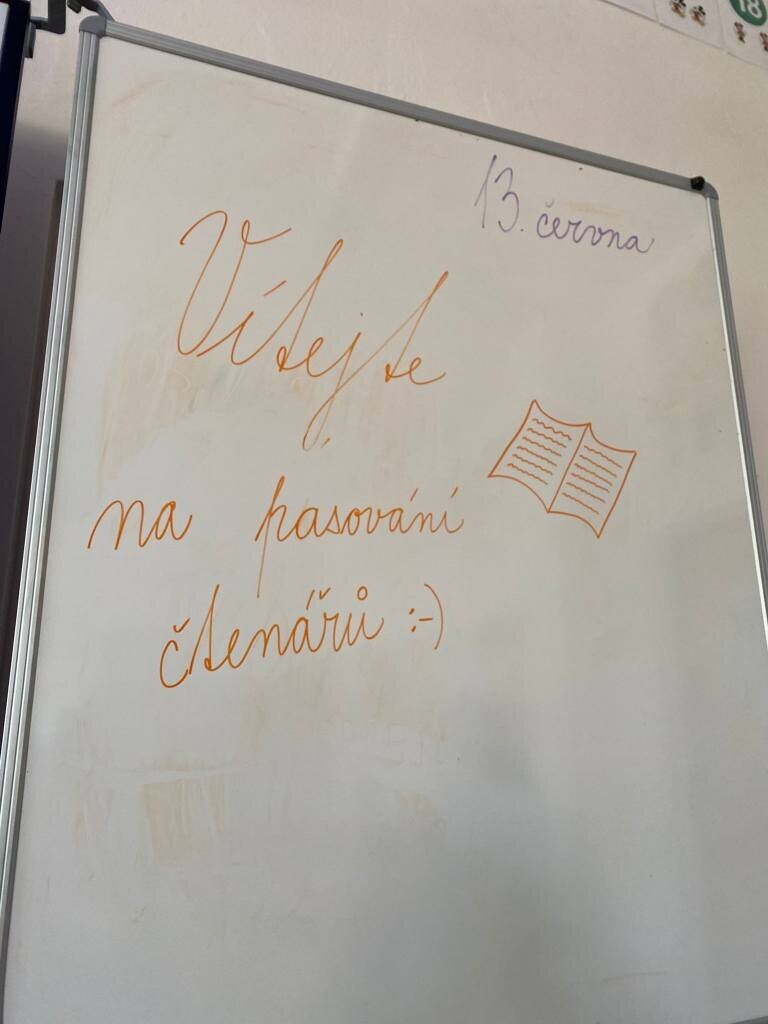 18
13. června
Vítejte
na pasování
čtenářů :-)